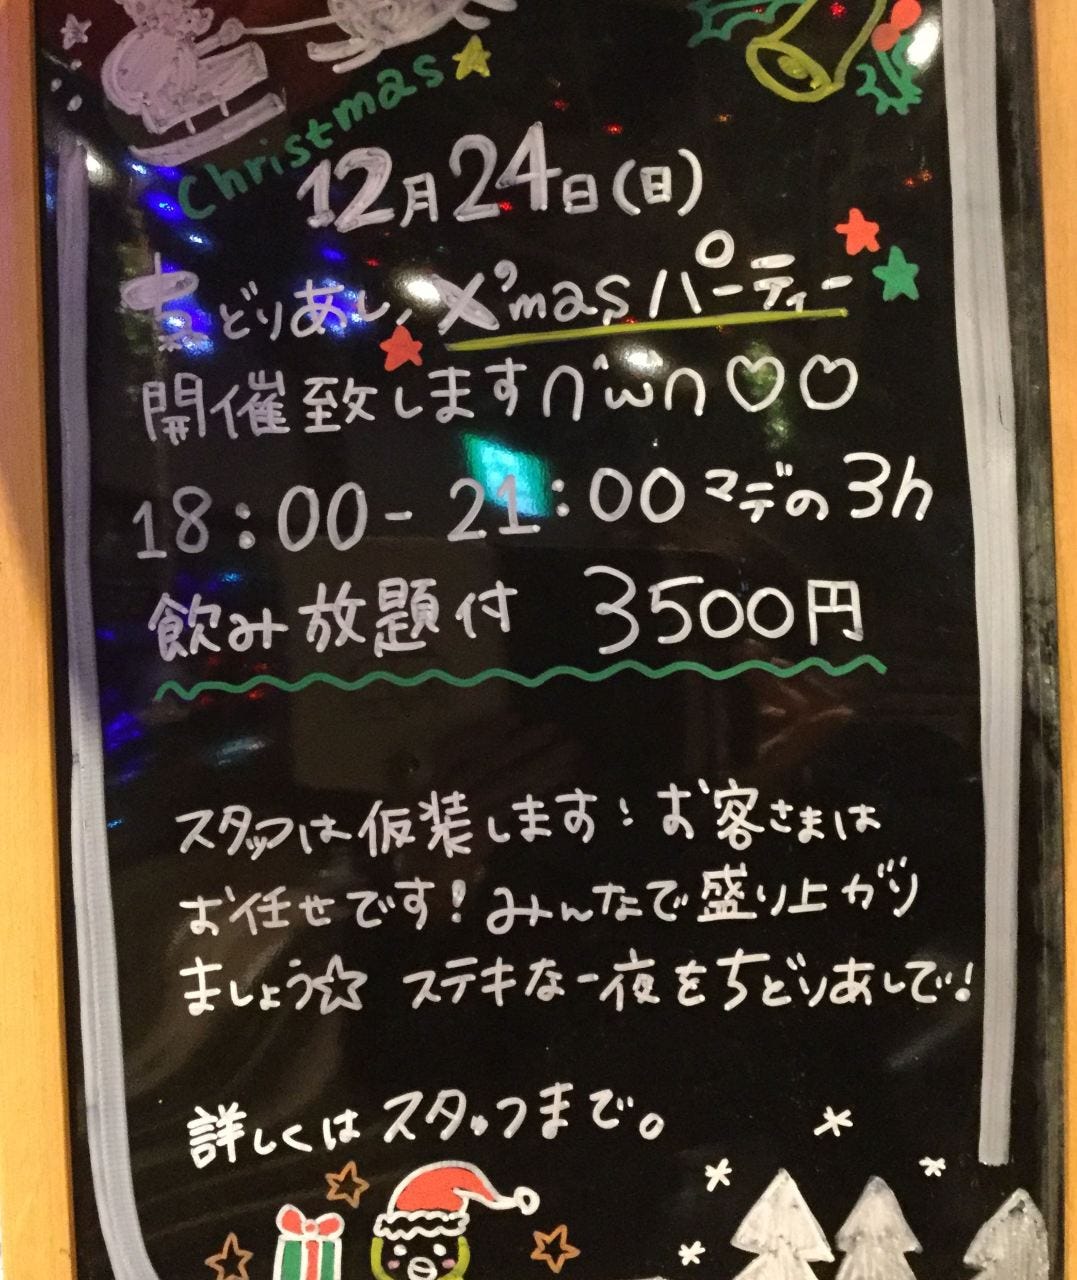 Christmas
12月24日(日)
ちどりあし、X'masパーティー
開催致します∩'ω'∩♡♡
18:00-21:00マデの3h
飲み放題付 3500円
スタッフは仮装します!お客さまは
お任せです!みんなで盛り上がり
ましょう☆ ステキな一夜をちどりあしで!
詳しくはスタッフまで。